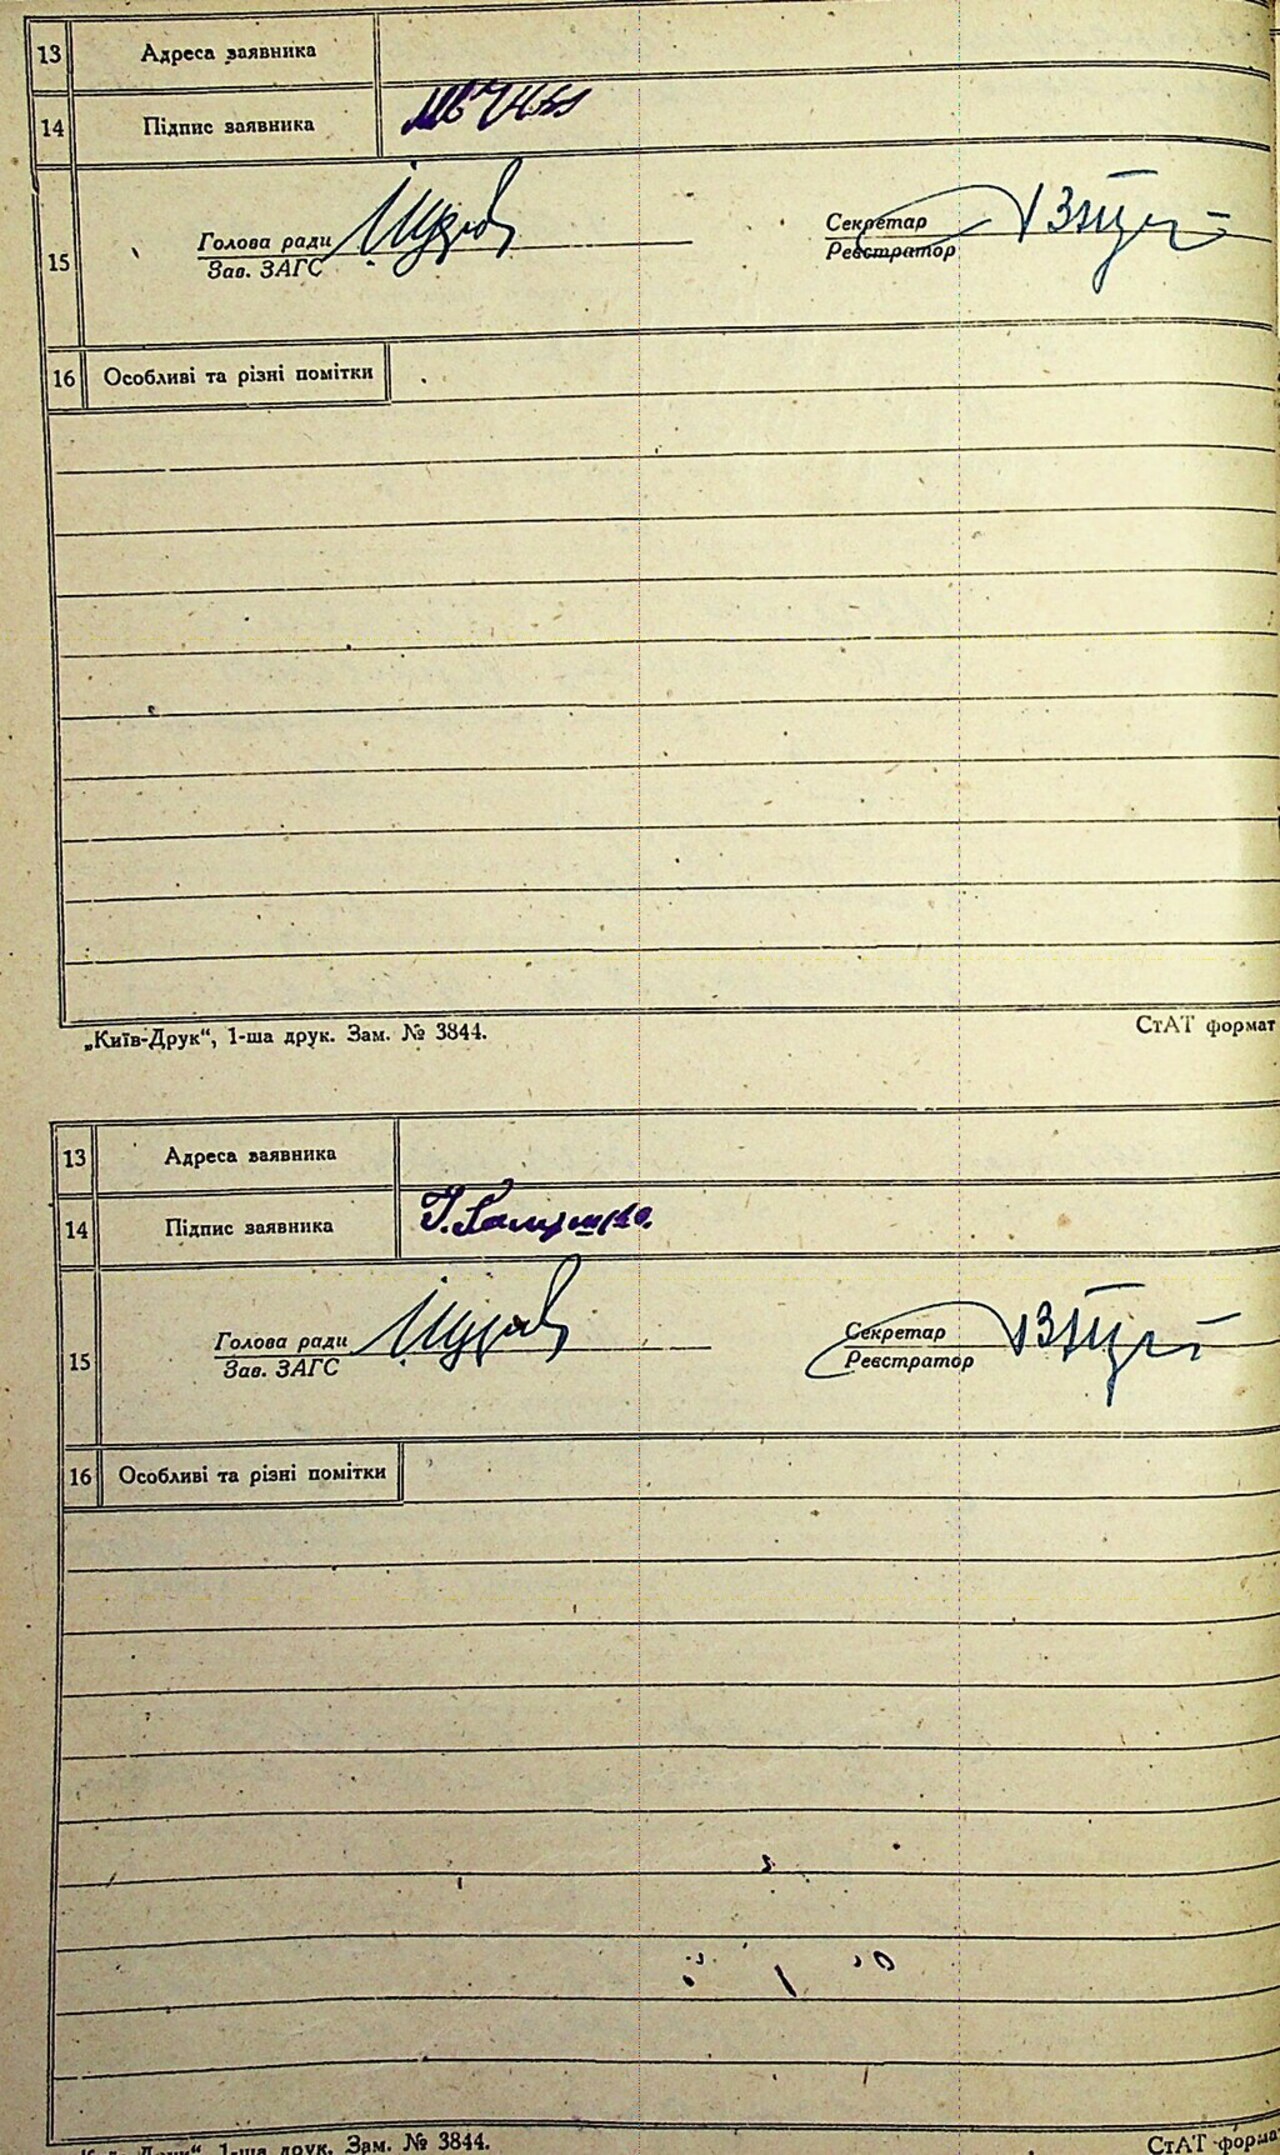 13 Адреса заявника
14 Підпис заявника
15 Голова ради Секретар
Зав. ЗАГС Реєстратор
16 Особливі та різні помітки
„Київ-Друк“, 1-ша друк. Зам. № 3844. СтАТ формат
13 Адреса заявника
14 Підпис заявника
15 Голова ради Секретар
Зав. ЗАГС Реєстратор
16 Особливі та різні помітки
1-ша друк. Зам. № 3844. СтАТ форма